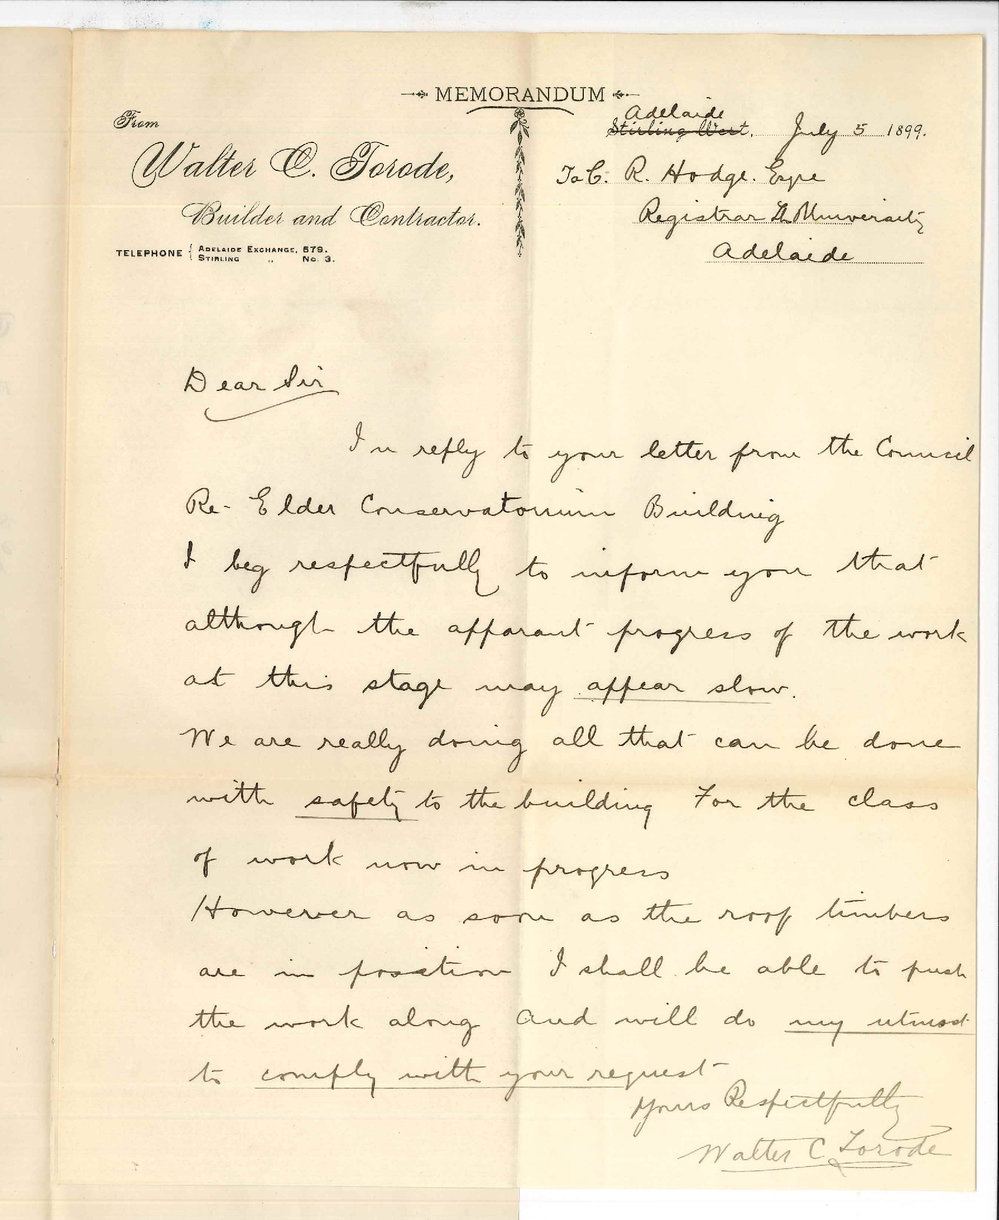 MEMORANDUM
From
Walter C. Torode,
Builder and Contractor.
TELEPHONE { ADELAIDE EXCHANGE, 579.
STIRLING „ No 3.
Adelaide
Stirling West, July 5 1899.
To C. R. Hodge. Esqre
Registrar University
Adelaide
Dear Sir
In reply to your letter from the Council
Re- Elder Conservatorium Building
I beg respectfully to inform you that
although the apparant progress of the work
at this stage may appear slow.
We are really doing all that can be done
with safety to the building For the class
of work now in progress
However as soon as the roof timbers
are in position I shall be able to push
the work along and will do my utmost
to comply with your request
Yours Respectfully
Walter C Torode